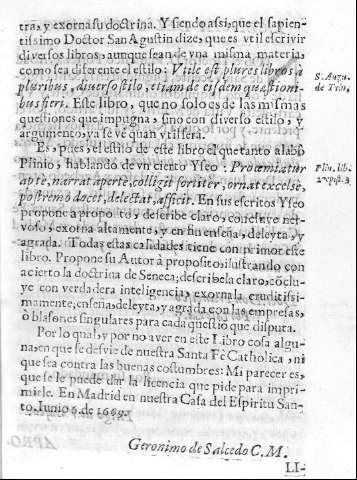 tra, y exorna su doctrina. Y siendo assi, que el sapien-
tissimo Doctor San Agustin dize, que es vtil escrivir
diversos libros, aunque sean de vna misma materia,
como sea diferente el estilo: Vtile est plures libros à
pluribus, diverso stilo, etiam de eisdem quæstioni-
bus fieri. Este libro, que no solo es de las mismas
questiones que impugna, sino con diverso estilo, y
argumento, ya se vè quan vtil serà.
S. Augu.
de Trin,
Es, pues, el estilo de este libro el que tanto alabò
Plinio, hablando de vn cierto Yseo: Proœmiatur
aptè, narrat apertè, colligit fortiter, ornat excelsè,
postremo docet, delectat, afficit. En sus escritos Yseo
propone à proposito, describe claro, concluye ner-
voso, exorna altamente, y en fin enseña, deleyta, y
agrada. Todas estas calidades tiene con primor este
libro. Propone su Autor à proposito, ilustrando con
acierto la doctrina de Seneca; describela claro, cõclu-
ye con verdadera inteligencia, exornala eruditissi-
mamente; enseña, deleyta, y agrada con las empresas,
ò blasones singulares para cada questiõ que disputa.
Plin. lib.
2. epist. 3
Por lo qual, y por no aver en este Libro cosa algu-
na, en que se desvie de nuestra Santa Fè Catholica, ni
que sea contra las buenas costumbres: Mi parecer es,
que se le puede dar la licencia que pide para impri-
mirle. En Madrid en nuestra Casa del Espiritu San-
to. Junio 6. de 1699.
Geronimo de Salcedo C. M.
LI-